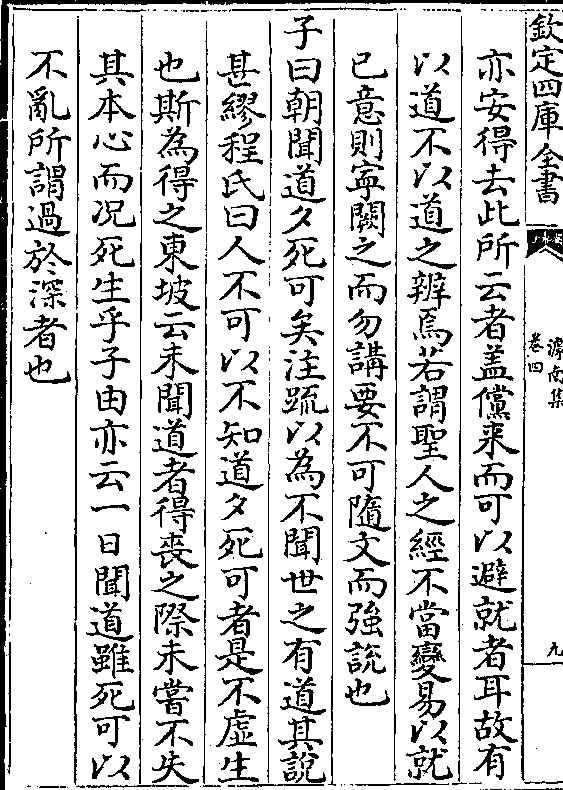 欽定四庫全書
滹南集
卷四
九
亦安得去此所云者盖儻来而可以避就者耳故有
以道不以道之辨焉若謂聖人之經不當變易以就
已意則寧闕之而勿講要不可隨文而強説也
子曰朝聞道夕死可矣注䟽以為不聞世之有道其說
甚繆程氏曰人不可以不知道夕死可者是不虚生
也斯為得之東坡云未聞道者得喪之際未嘗不失
其本心而况死生乎子由亦云一日聞道雖死可以
不亂所謂過於深者也